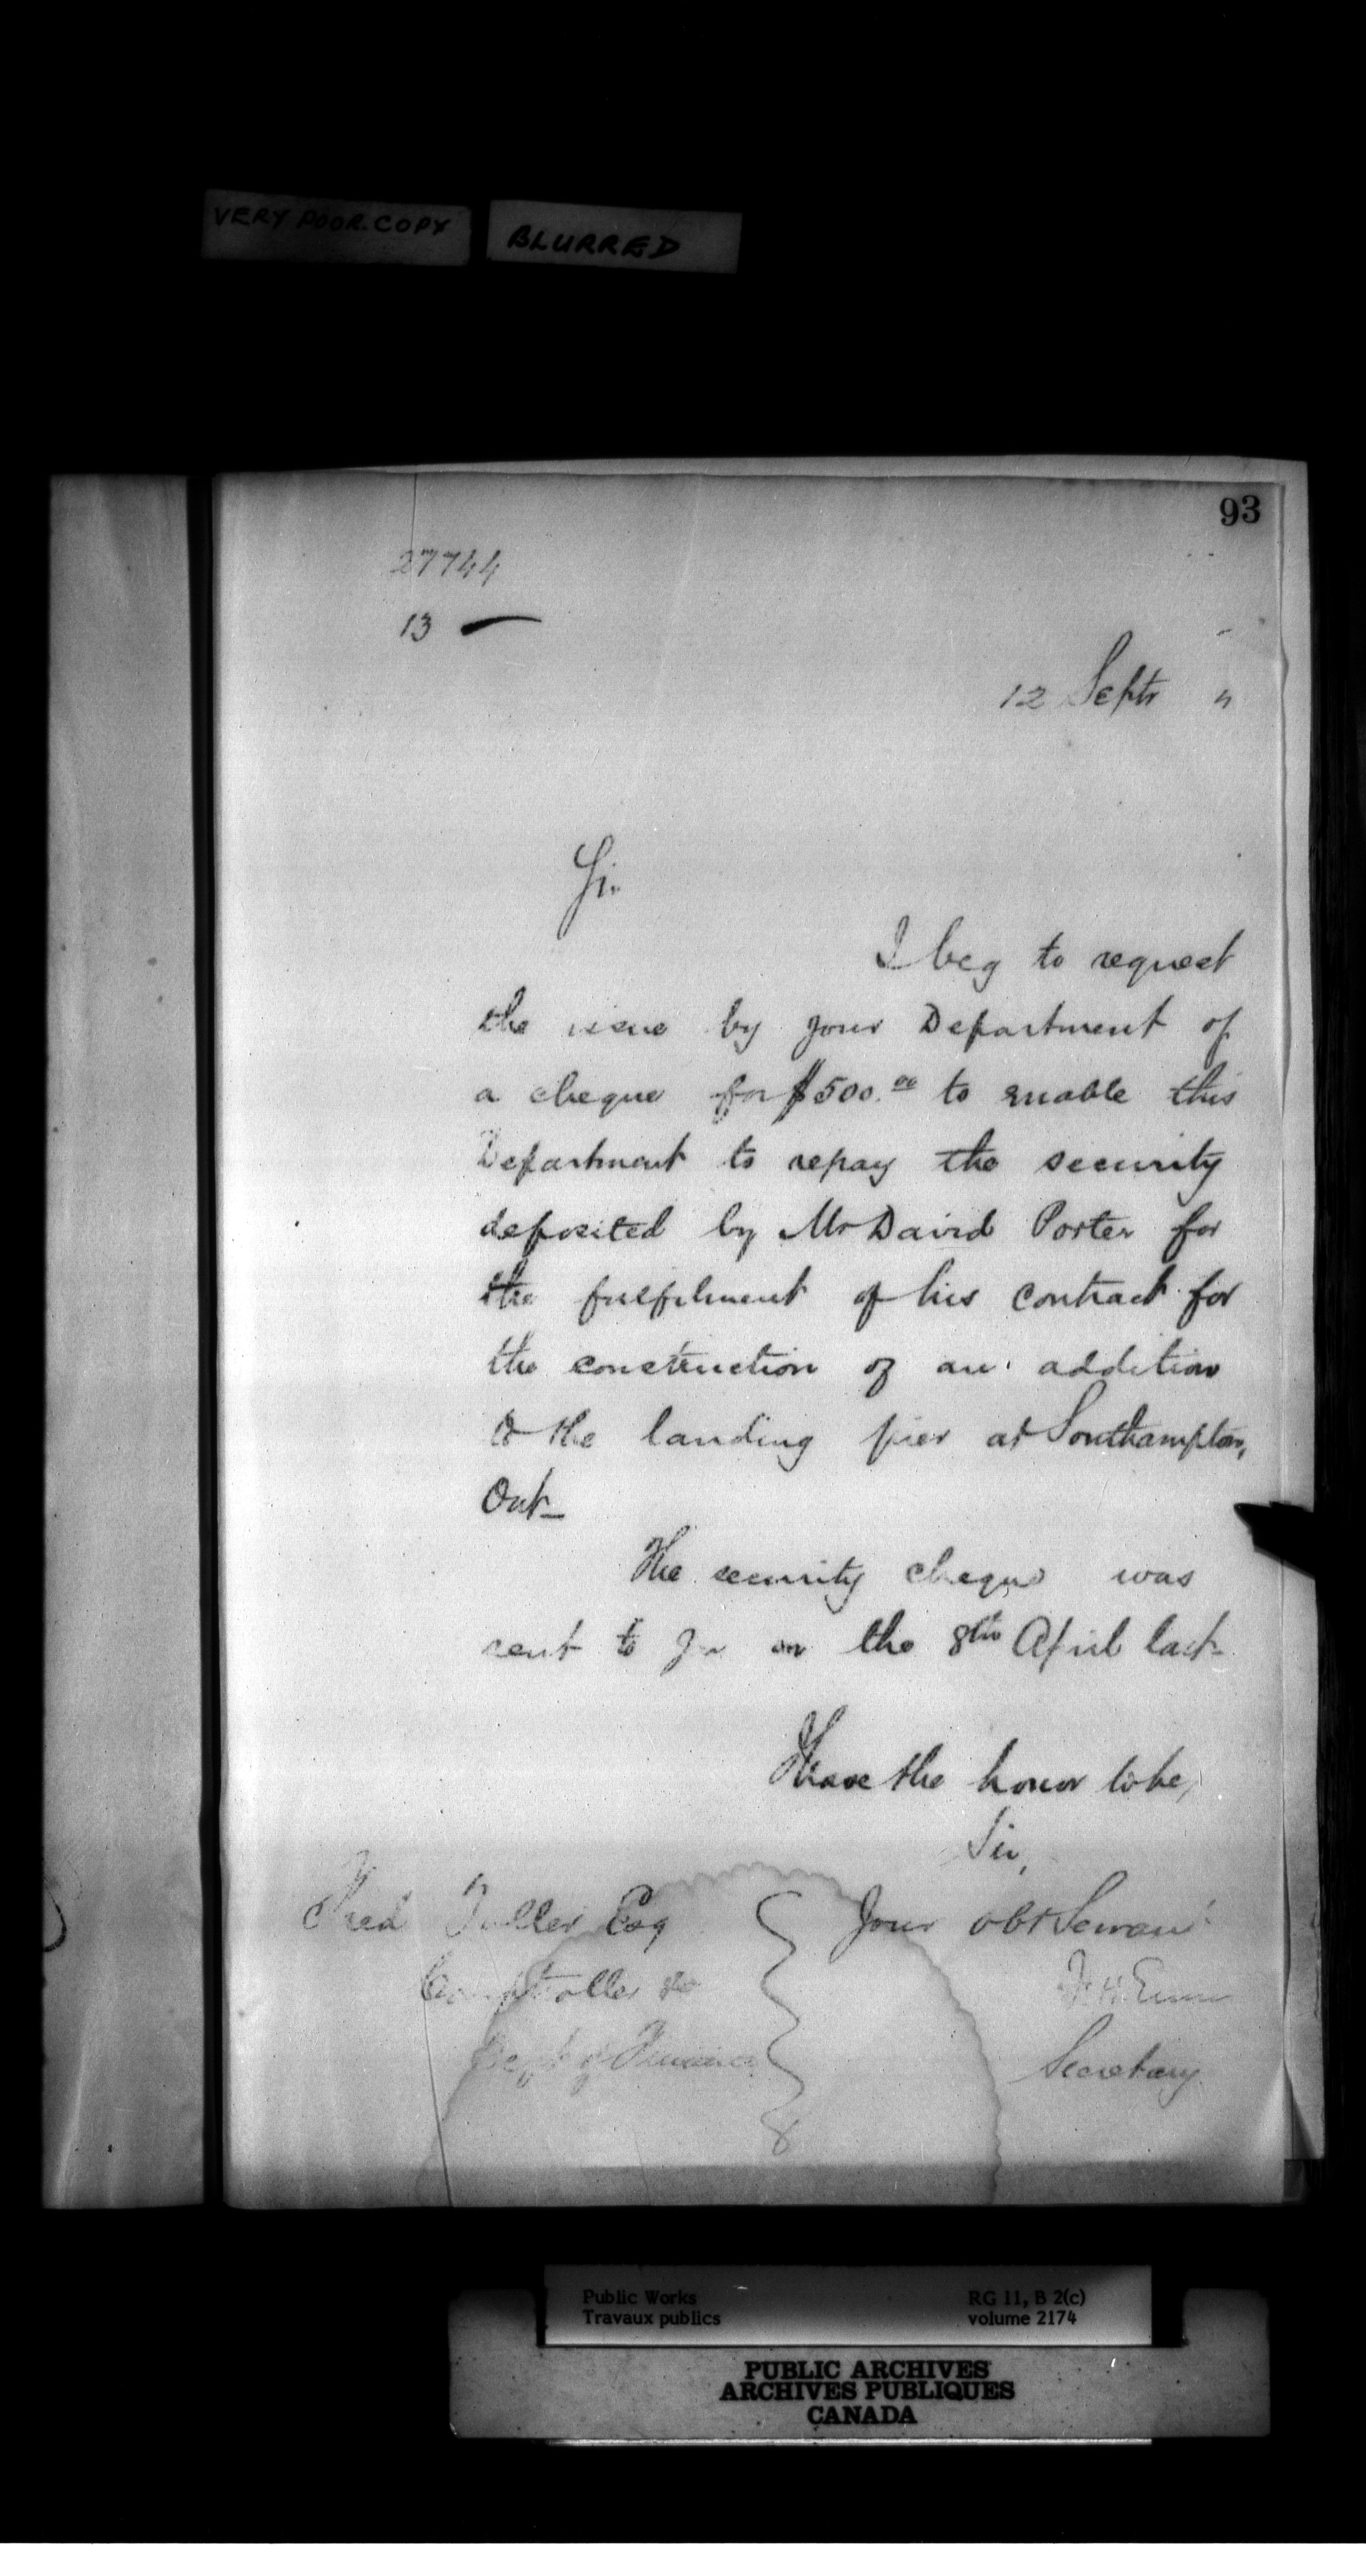 VERY POOR COPY
BLURRED
93
27744
13 —
12 Septr "
Sir
I beg to request
the issue by your Department of
a cheque for $500.00 to enable this
Department to repay the security
deposited by Mr David Porter for
the fulfilment of his contract for
the construction of an addition
to the landing pier at Southampton,
Ont_
The security cheque was
sent to you on the 8th April last_
I have the honor to be,
Sir,
Fred Toller Esq
Your obt Servant
Comptroller
Dept of Finance
Secretary
Public Works
Travaux publics
RG 11, B 2(c)
volume 2174
PUBLIC ARCHIVES
ARCHIVES PUBLIQUES
CANADA